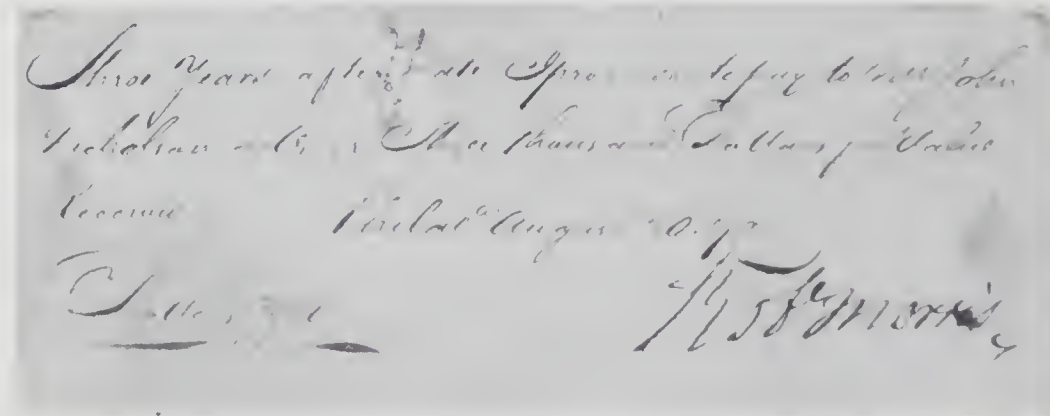 Three Years after date I promise to pay to Mr John
Nicholson or Three thousand Dollars for Value
Received Philad.ª August
Dollars
Rob.t Morris